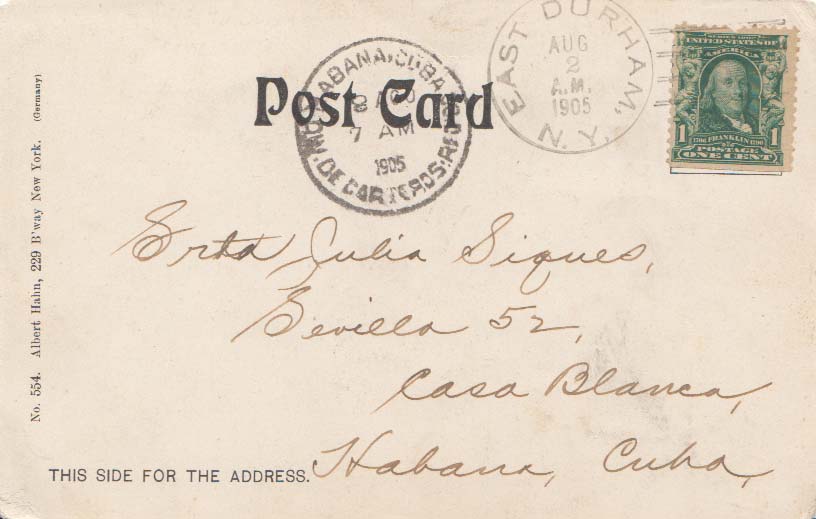 Post Card
HABANA, CUBA. REC
8 AGO
7 AM
1905
DE CARTEROS.
EAST DURHAM,
AUG
2
A.M.
1905
N.Y.
SERIES 1902
UNITED STATES OF AMERICA
1706 FRANKLIN 1790
1 1
POSTAGE
ONE CENT
Srta Julia Siques,
Sevilla 52,
Casa Blanca,
Habana, Cuba,
THIS SIDE FOR THE ADDRESS.
No. 554. Albert Hahn, 229 B'way New York. (Germany)